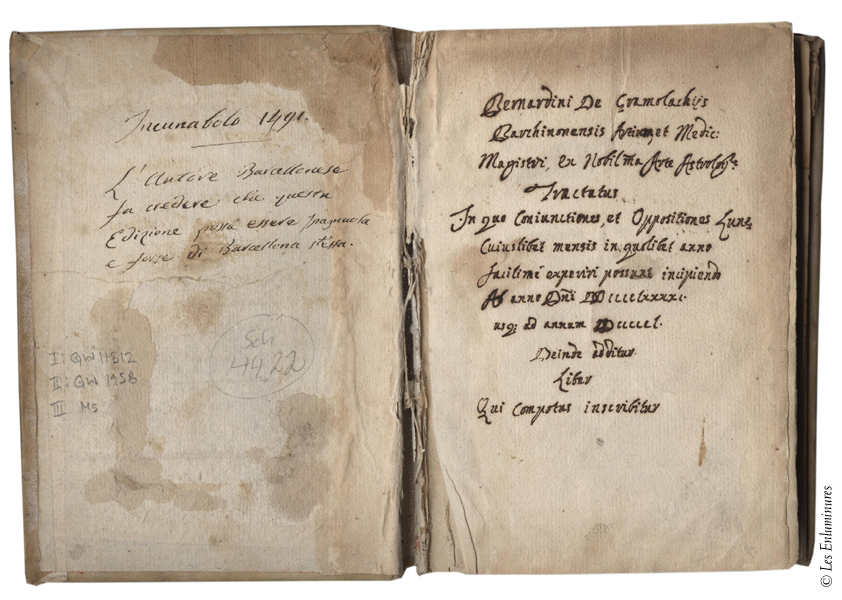 Incunabolo 1491.
L'Autore Barcellonese
fa credere che questa
Edizione possa essere spagnuola
e forse di Barcellona stessa.
Sch
4422
I: GW 11312
II: GW 1958
III Ms
Bernardini De Gramolachijs
Barchinonensis et Medic:
Magistri, ex Nobil:ma Arte Astrolog:
Tractatus
In quo Coniunctiones, et Oppositiones Lune
Cuiuslibet mensis in quolibet anno
facilimé experiri possunt incipiendo
Ab anno Dni MCCCCLXXXXI.
usq; ad annum MDCCCCL.
Deinde additur
Liber
Qui Compotus inscribitur
© Les Enluminures